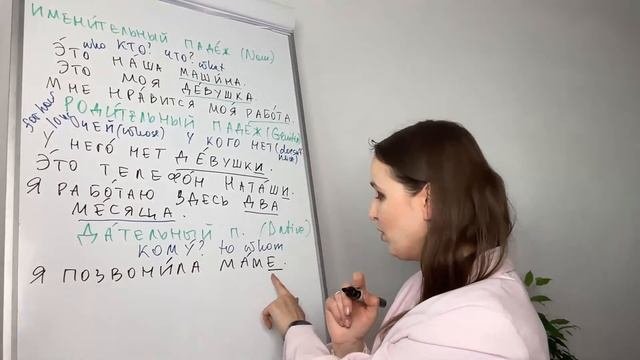 ИМЕНИ́ТЕЛЬНЫЙ ПАДЕ́Ж (Nom)
who КТО? ЧТО? what
Э́ТО НА́ША МАШИ́НА.
ЭТО МОЯ ДЕ́ВУШКА.
МНЕ НРА́ВИТСЯ МОЯ́ РАБО́ТА.
РОДИ́ТЕЛЬНЫЙ ПАДЕ́Ж (Genitive)
for how long ЧЕЙ (whose) У КОГО НЕТ (doesn't have)
У НЕГО́ НЕТ ДЕ́ВУШКИ.
Э́ТО ТЕЛЕФО́Н НАТА́ШИ.
Я РАБО́ТАЮ ЗДЕСЬ ДВА
МЕ́СЯЦА.
ДА́ТЕЛЬНЫЙ П. (Dative)
КОМУ́? to whom
Я ПОЗВОНИ́ЛА МА́МЕ.